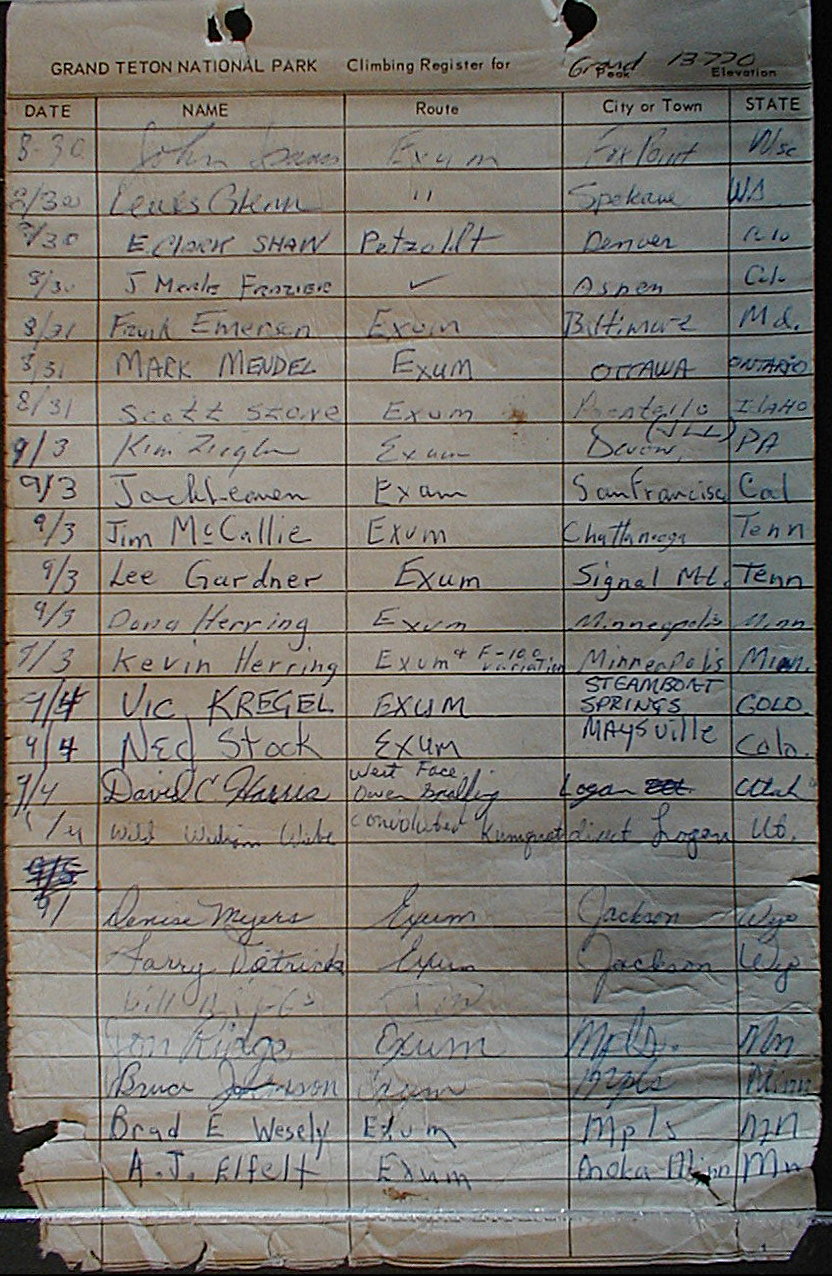 GRAND TETON NATIONAL PARK Climbing Register for Grand 13770
Peak Elevation
DATE NAME Route City or Town STATE
8-30 John Exum Fox Point Wisc
8/30 Lewis Glenn " Spokane WA
8/30 E. CLARK SHAW Petzoldt Denver
8/30 J Merle FRAZIER ✓ Aspen Colo
8/31 Frank Emerson Exum Baltimore Md.
8/31 MARK MENDEL EXUM OTTAWA ONTARIO
8/31 Scott Exum Pocatello IDAHO
9/3 Kim Ziegler Exum Devon, PA
9/3 Jack Exam San Francisco Cal
9/3 Jim McCallie Exum Chattanooga Tenn
9/3 Lee Gardner Exum Signal Mt. Tenn
9/3 Doug Herring Exum Minneapolis Minn
9/3 Kevin Herring Exum & F-100 variation Minneapolis Minn.
9/4 Vic KREGEL EXUM STEAMBOAT SPRINGS COLO.
9/4 Ned Stock EXUM MAYSville Colo.
9/4 David C Harris West Face Owen Spalding Logan Utah
Wild William convoluted Kumquat direct Logan Ut.
9/5
9/ Denise Myers Exum Jackson Wyo
Larry Exum Jackson Wyo
Bill
Jon Ridge Exum Mpls. Mn
Bruce Johnson Exum Mpls Minn
Brad E Wesely Exum Mpls MN
A.J. Elfelt Exum Anoka Minn Mn